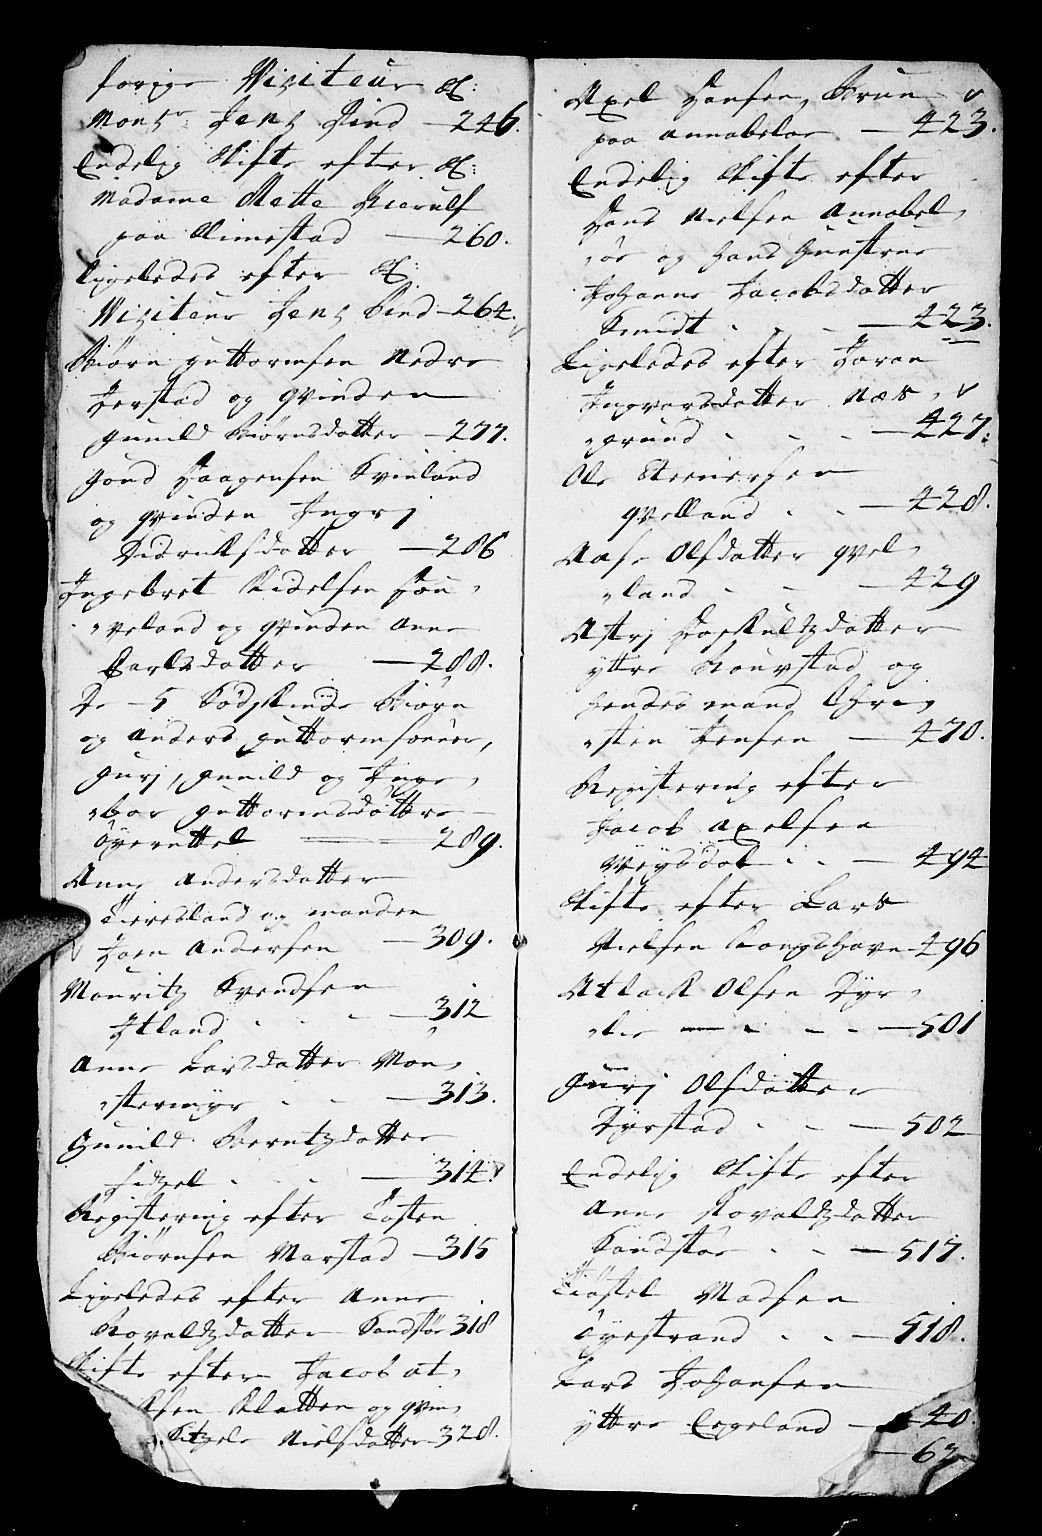 forige Visiteur S:
Mons: Jens Lind — 246.
Endelig Skifte efter S:
Madame Mette Kierulf
paa Rimestad — 260.
Ligeledes efter S:
Visiteur Jens Lind — 264.
Biørn guttormsen Nedre
Jerstad og Qvinden
gunild Biørnsdatter — 277.
Haagensen Qvinland
og Qvinden Ingri
Didriksdatter — 286
Ingebret Kidelsen
veland og Qvinden Anne
Carlsdatter — 288.
De 5 Sødskinde Biørn
og Anders guttormsønner,
gurj, gunild og Inge,
bor guttormsdøttre
— 289.
Anne Andersdatter
og manden
Joen Andersen — 309.
Mouritz Svendsen
Itland — 312
Anne Larsdatter Mon,
stermyr — 313.
Gunild Berntzdatter
Fidzel — 314.
Registering efter Tosten
Biørnsen Narstad — 315
Ligeledes efter Anne
Rovaldzdatter Sandstøe 318
Skifte efter Jacob At,
sen Klatten og Qvin,
Nielsdatter — 328.
Axel Hansen, Bruun
paa Annabeløe — 423.
Endelig Skifte efter
Hans Nielsen Annabel,
øe og hans Hustrue
Johanne Jacobsdatter
Smidt — 423.
Ligeledes efter Joran
Ingvorsdatter Næs,
grund — 427.
Ole Steenersen
Qvelland — 428.
Aase Olsdatter Qvel,
land — 429
Astrj Hoskuldzdatter
yttre Rourstad og
hendes mand Chri,
sten Jensen — 470.
Registering efter
Jacob Axelsen
Veysdal — 494
Skifte efter Lars
Nielsen Rongshavn — 496
Atlack Olsen Dyr,
lie — 501
Gurj Olsdatter
Dyrstad — 502
Endelig Skifte efter
Anne Rovaldzdatter
Sandstøe — 517.
Kiøstel Madsen
Øyestrand — 518.
Lars Johansen
yttre Egeland — 40.
— 62